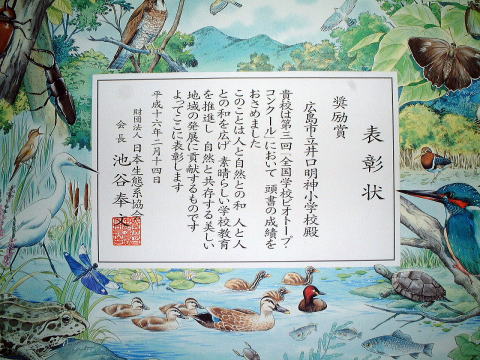 表彰状
奨励賞
広島市立井口明神小学校殿
貴校は第三回「全国学校ビオトープ・
コンクール」において 頭書の成績を
おさめました
このことは人と自然との和 人と人
との和を広げ 素晴らしい学校教育
を推進し 自然と共存する美しい
地域の発展に貢献するものです
よってここに表彰します
平成十六年二月十四日
財団法人 日本生態系協会
会長 池谷奉文